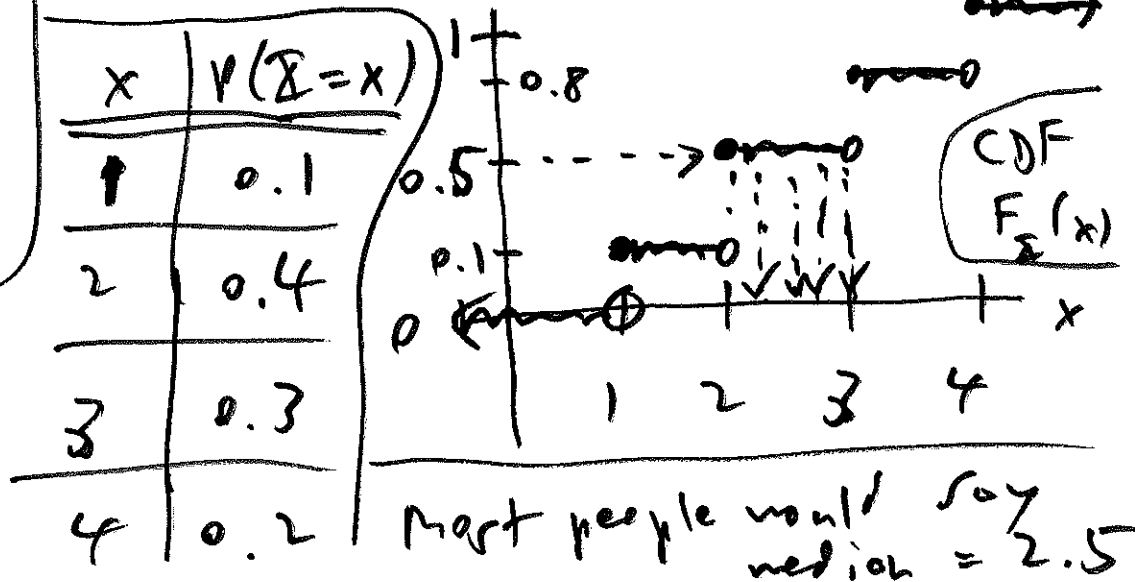 x P(X=x)
1 0.1
2 0.4
3 0.3
4 0.2
1
0.8
0.5
0.1
0
1 2 3 4 x
CDF
F_X(x)
Most people would say
median = 2.5